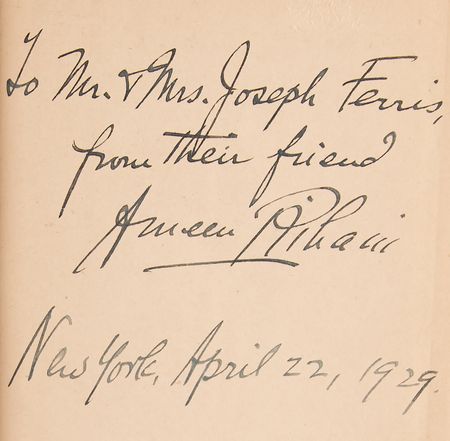 To Mr. & Mrs. Joseph Ferris,
from their friend
Ameen Rihani
New York, April 22, 1929.